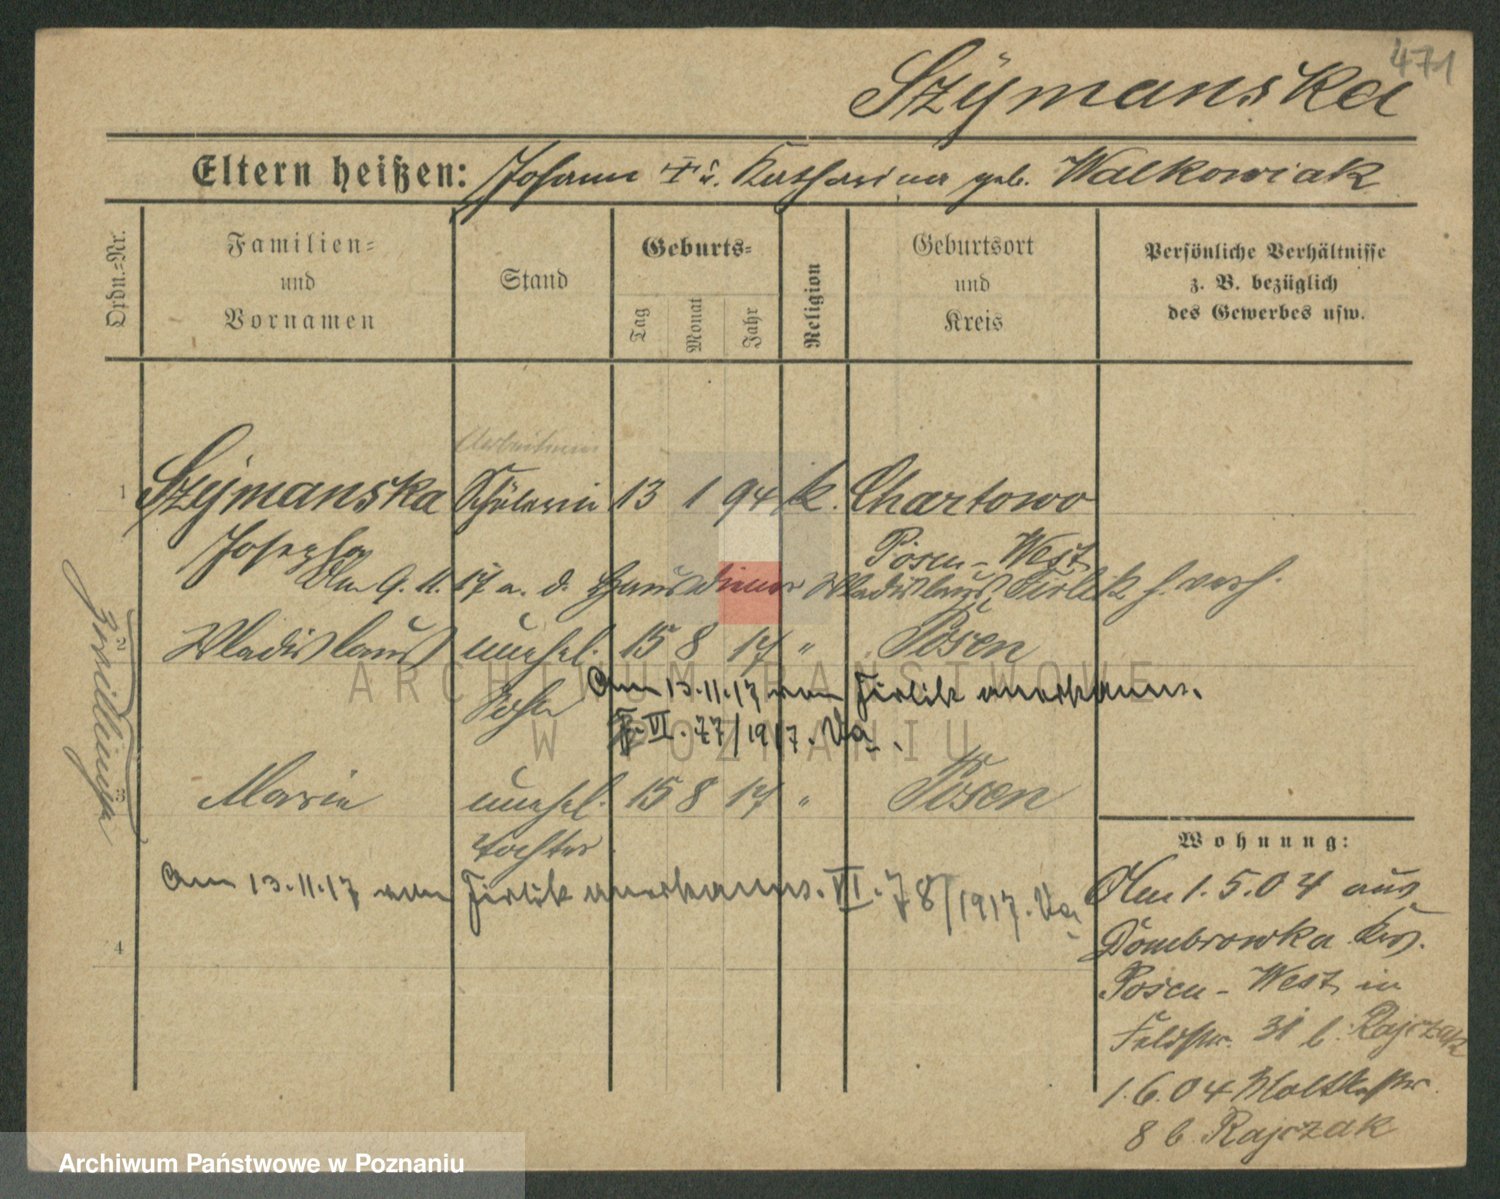 471
Szÿmanska
Eltern heißen: Johann ☩ u. Katharina geb. Walkowiak
Ordn.=Nr.
Familien=
und
Vornamen
Stand
Geburts=
Tag
Monat
Jahr
Religion
Geburtsort
und
Kreis
Persönliche Verhältnisse
z. B. bezüglich
des Gewerbes usw.
Arbeiterin
1 Szÿmanska Schülerin 13 1 94 k. Chartowo
Josepha Posen-West
Am 9.11.17 a. d. Hausdiener Wladislaus Firlik h. verh.
Zwillinge
2 Wladislaus unehel. 15 8 17 " Posen
Sohn Am 13.11.17 von Firlik anerkannt.
F. VI. 77/1917. Va.
3 Marie unehel. 15 8 17 " Posen
Tochter
Am 13.11.17 von Firlik anerkannt. VI. 78/1917. Va
4
Wohnung:
Am 1.5.04 aus
Dombrowka Krs.
Posen-West in
Feldstr. 31 b. Rajczak
1.6.04 Moltkestr.
8 b. Rajczak
ARCHIWUM PAŃSTWOWE
W POZNANIU
Archiwum Państwowe w Poznaniu